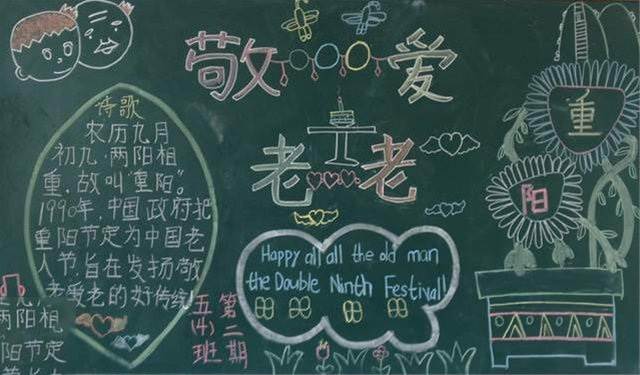 敬爱
老老
诗歌
农历九月
初九,两阳相
重,故叫"重阳"。
1990年,中国政府把
重阳节定为中国老
人节,旨在发扬敬
老爱老的好传统!
两阳相
阳节定
Happy all all the old man
the Double Ninth Festival!
重
阳
第二期
五(4)班